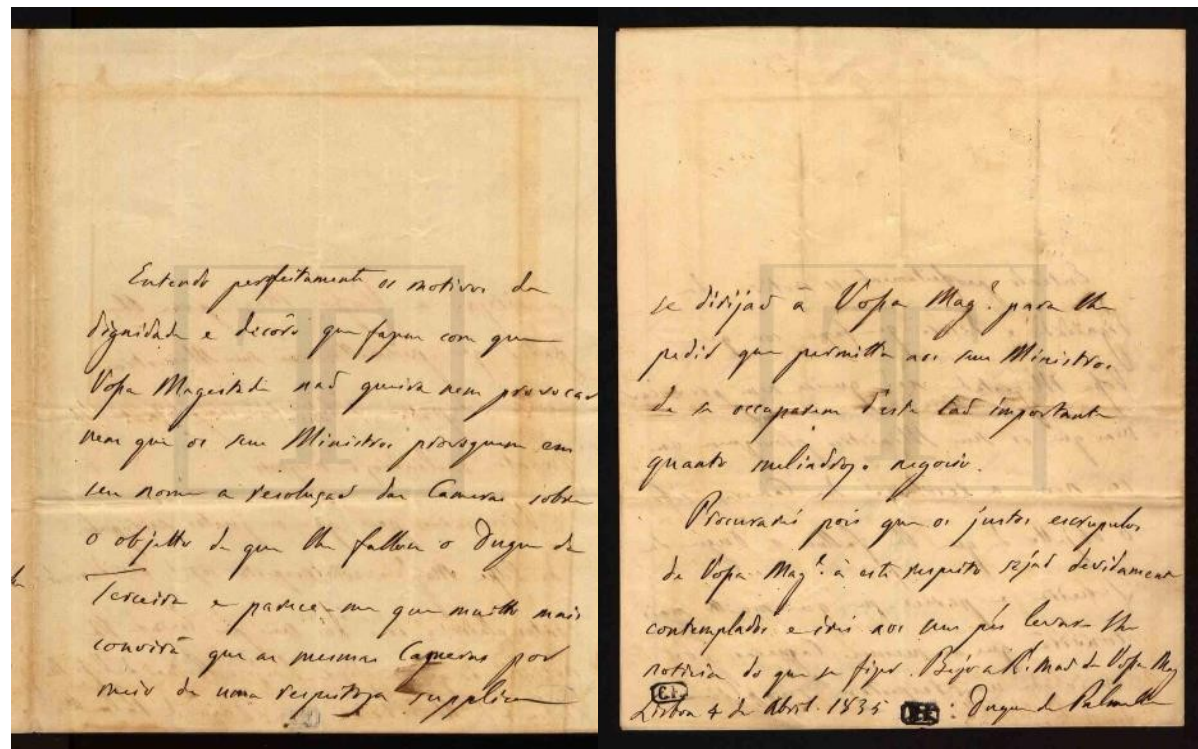 Entendo perfeitamente os motivos da
dignidade e decóro que fazem com que
Vossa Magestade naõ queira nem provocar
nem que os seus Ministros provoquem em
seu nome a resoluçaõ das Cameras sobre
o objetto de que lhe fallou o Duque da
Terceira e parece-me que muitto mais
convirá que as mesmas Cameras por
meio de uma respeitoza supplica
se dirijaõ a Vossa Mag.e para lhe
pedir que permitta aos seus Ministros
de se occuparem d'este taõ importante
quanto melindrozo negocio.
Procurarei pois que os justos escrupulos
de Vossa Mag.e á este respeito sejaõ devidamente
contemplados e irei aos seus pés levar lhe
noticia do que se fizer. Bejo a R. maõ de Vossa Mag
Lisboa 4 de Abril 1835 Duque de Palmella